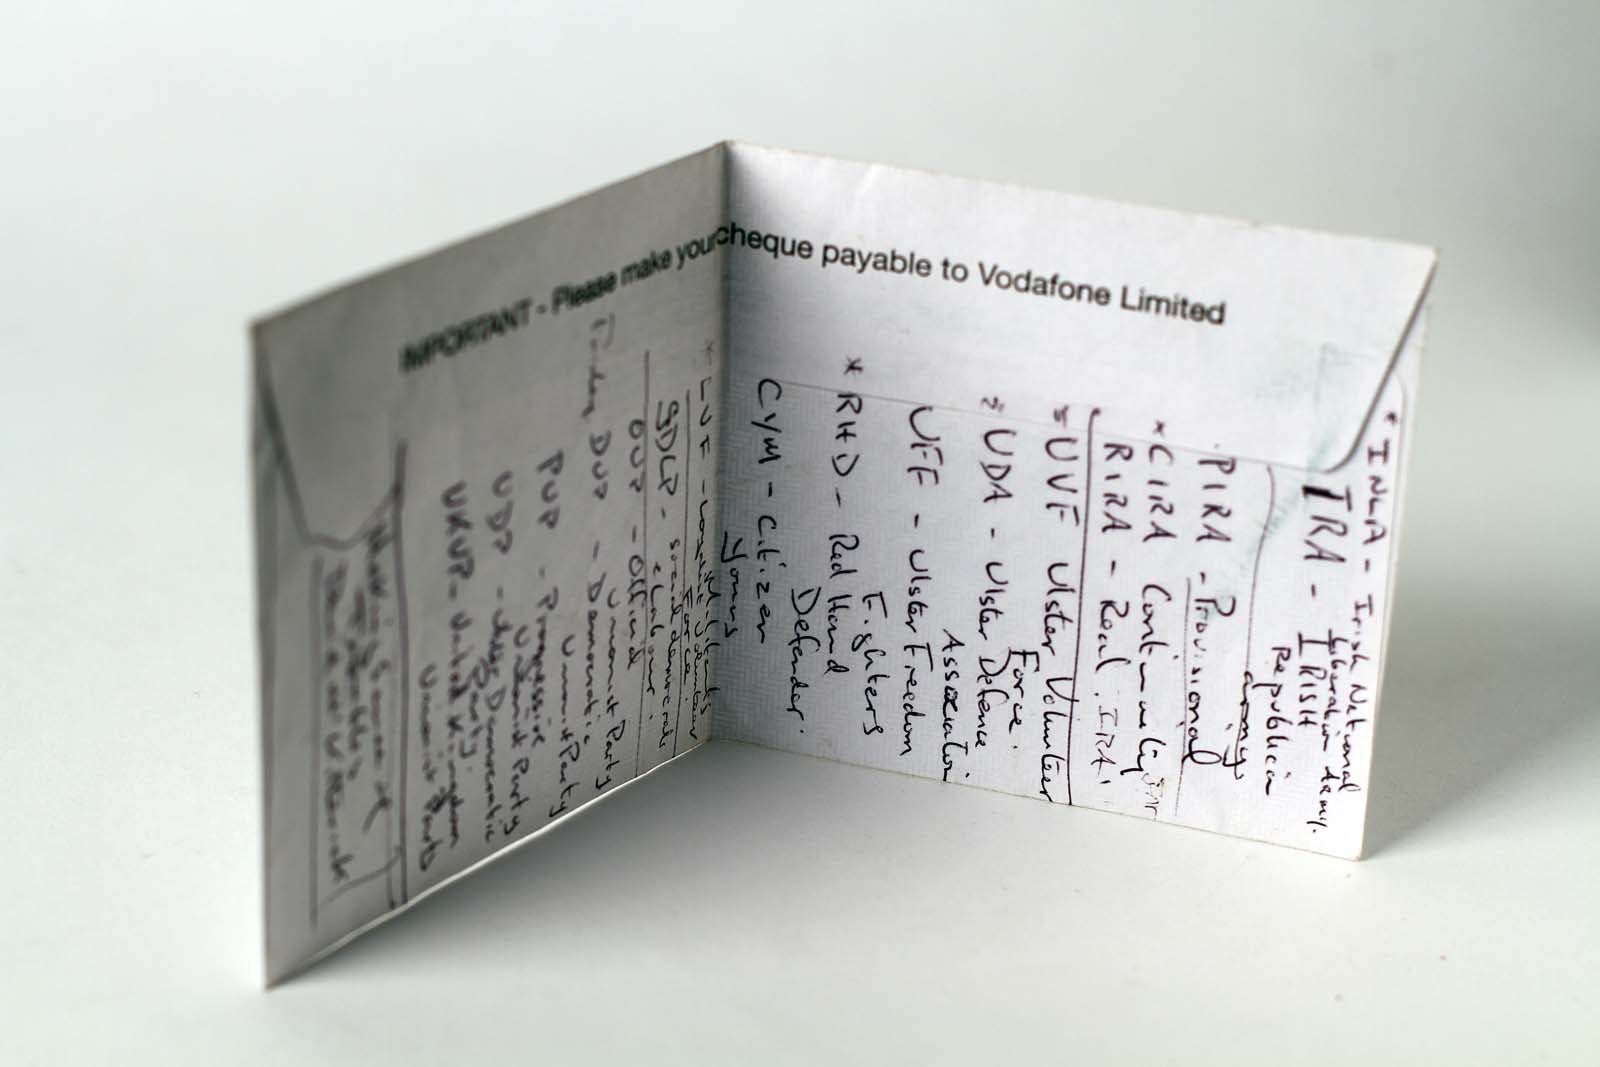 IMPORTANT - Please make your cheque payable to Vodafone Limited
* INLA - Irish National
Liberation Army.
IRA - IRISH
Republican
army
PIRA - Provisional
* CIRA Continuity
RIRA - Real IRA
UVF Ulster Volunteer
Force.
UDA - Ulster Defence
Association
UFF - Ulster Freedom
Fighters
* RHD - Red Hand
Defender.
CYM - Citizen
Yours
* LVF - Loyalist Volunteer
Force
SDLP - social democratic
& labour
OUP - Official
Unionist Party
DUP - Democratic
Unionist Party
PUP - Progressive
Unionist Party
UDP - Ulster Democratic
Party.
UKUP - United Kingdom
Unionist Party